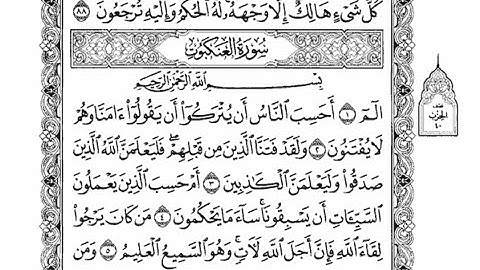 كُلُّ شَيْءٍ هَالِكٌ إِلَّا وَجْهَهُۥ لَهُ ٱلْحُكْمُ وَإِلَيْهِ تُرْجَعُونَ ٨٨
سُورَةُ العَنكَبُوتِ
بِسْمِ ٱللَّهِ ٱلرَّحْمَٰنِ ٱلرَّحِيمِ
الٓمٓ ١ أَحَسِبَ ٱلنَّاسُ أَن يُتْرَكُوٓا۟ أَن يَقُولُوٓا۟ ءَامَنَّا وَهُمْ
لَا يُفْتَنُونَ ٢ وَلَقَدْ فَتَنَّا ٱلَّذِينَ مِن قَبْلِهِمْ ۖ فَلَيَعْلَمَنَّ ٱللَّهُ ٱلَّذِينَ
صَدَقُوا۟ وَلَيَعْلَمَنَّ ٱلْكَٰذِبِينَ ٣ أَمْ حَسِبَ ٱلَّذِينَ يَعْمَلُونَ
ٱلسَّيِّـَٔاتِ أَن يَسْبِقُونَا ۚ سَآءَ مَا يَحْكُمُونَ ٤ مَن كَانَ يَرْجُوا۟
لِقَآءَ ٱللَّهِ فَإِنَّ أَجَلَ ٱللَّهِ لَءَاتٍ ۚ وَهُوَ ٱلسَّمِيعُ ٱلْعَلِيمُ ٥ وَمَن
نصف
الحزب
٤٠